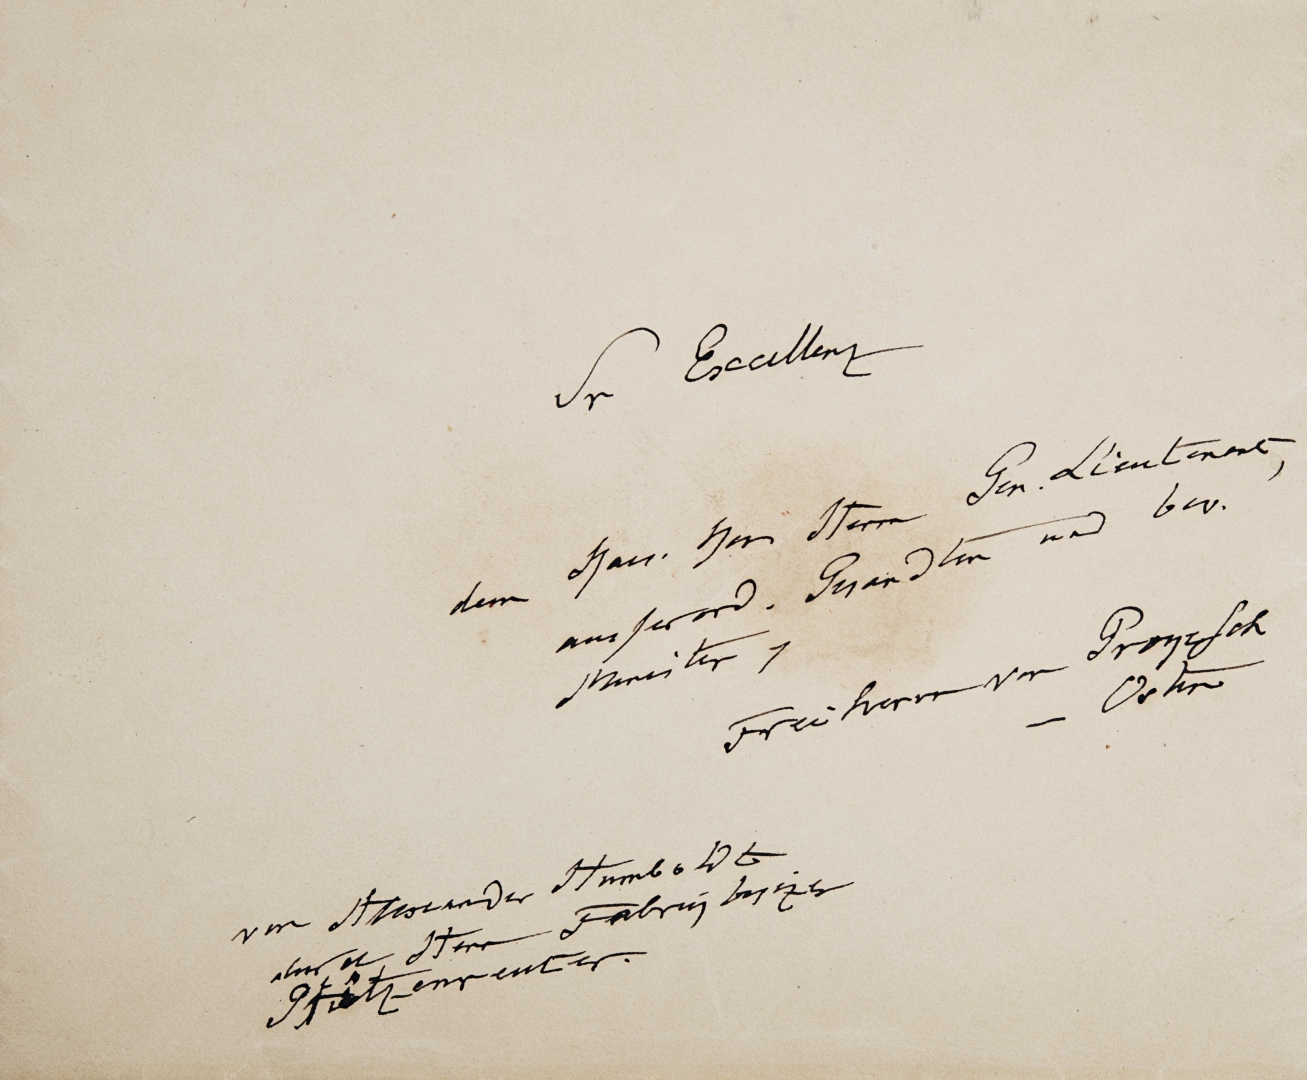 Sr Excellenz
dem Kais. Kön Herrn Gen. Lieutenant,
ausserord. Gesandten und bev.
Minister,
Freiherrn von Prokesch
– Osten
von Alexander Humboldt
durch Herr Fabrikbesizer
Pfützenreuter.